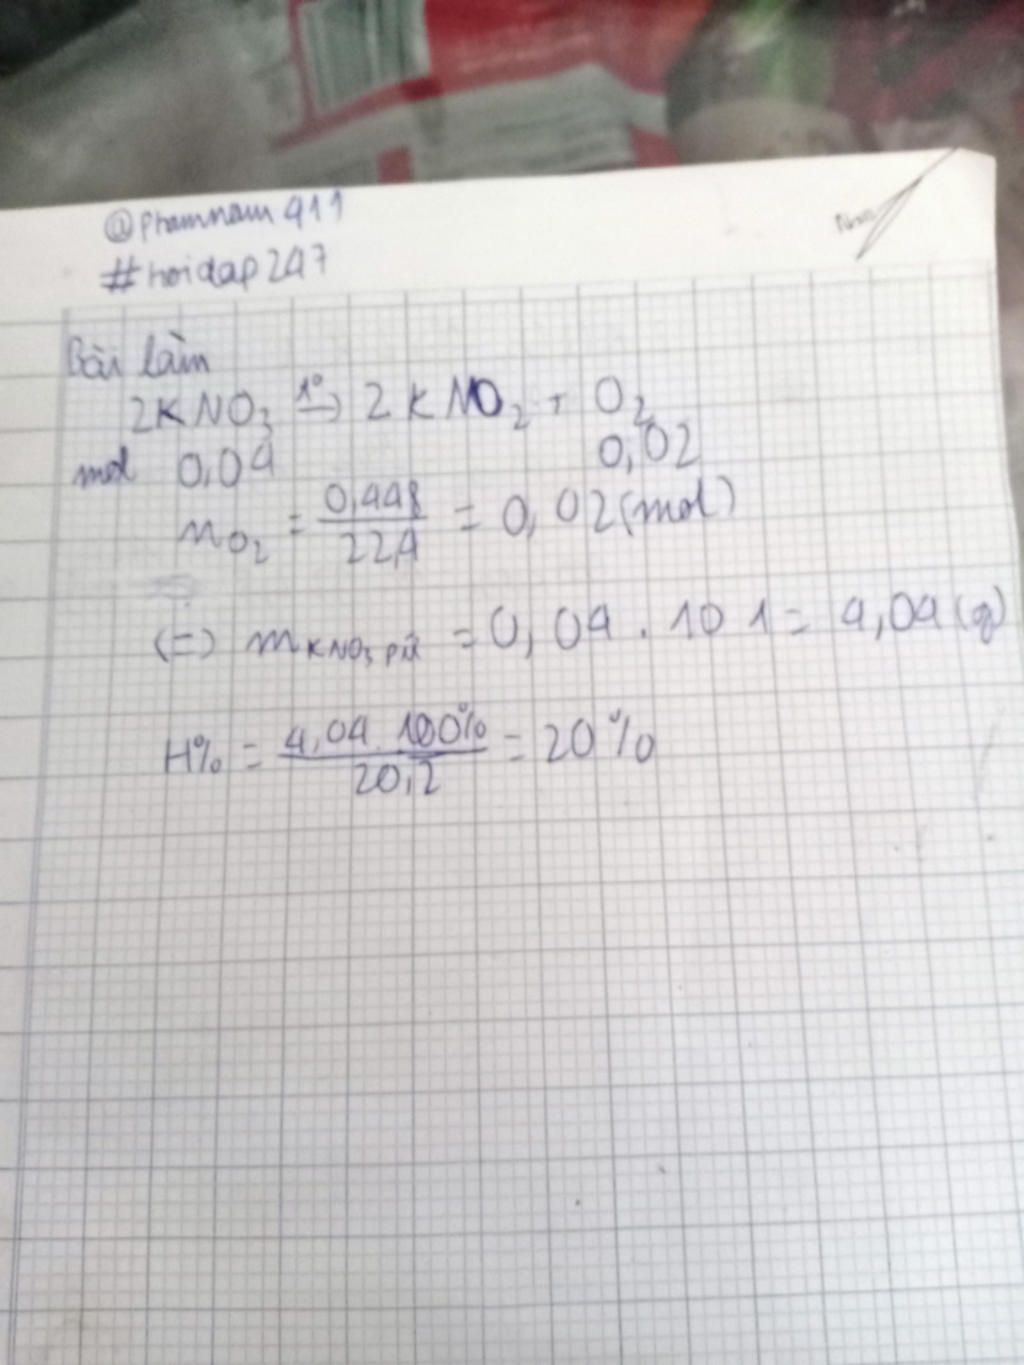 @phamnam911
#hoidap247
Bài làm
2KNO3 t°→ 2KNO2 + O2
mol 0,04 0,02
nO2 = 0,448/22,4 = 0,02(mol)
(=) mKNO3 pứ = 0,04 . 101 = 4,04(g)
H% = 4,04.100%/20,2 = 20%